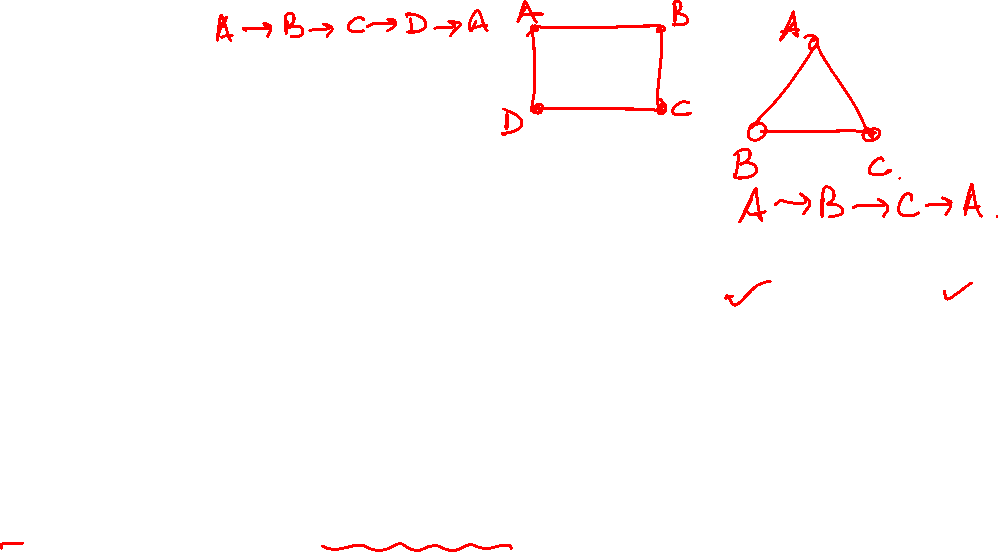 A → B → C → D → A
A B
D C
A
B C.
A → B → C → A.